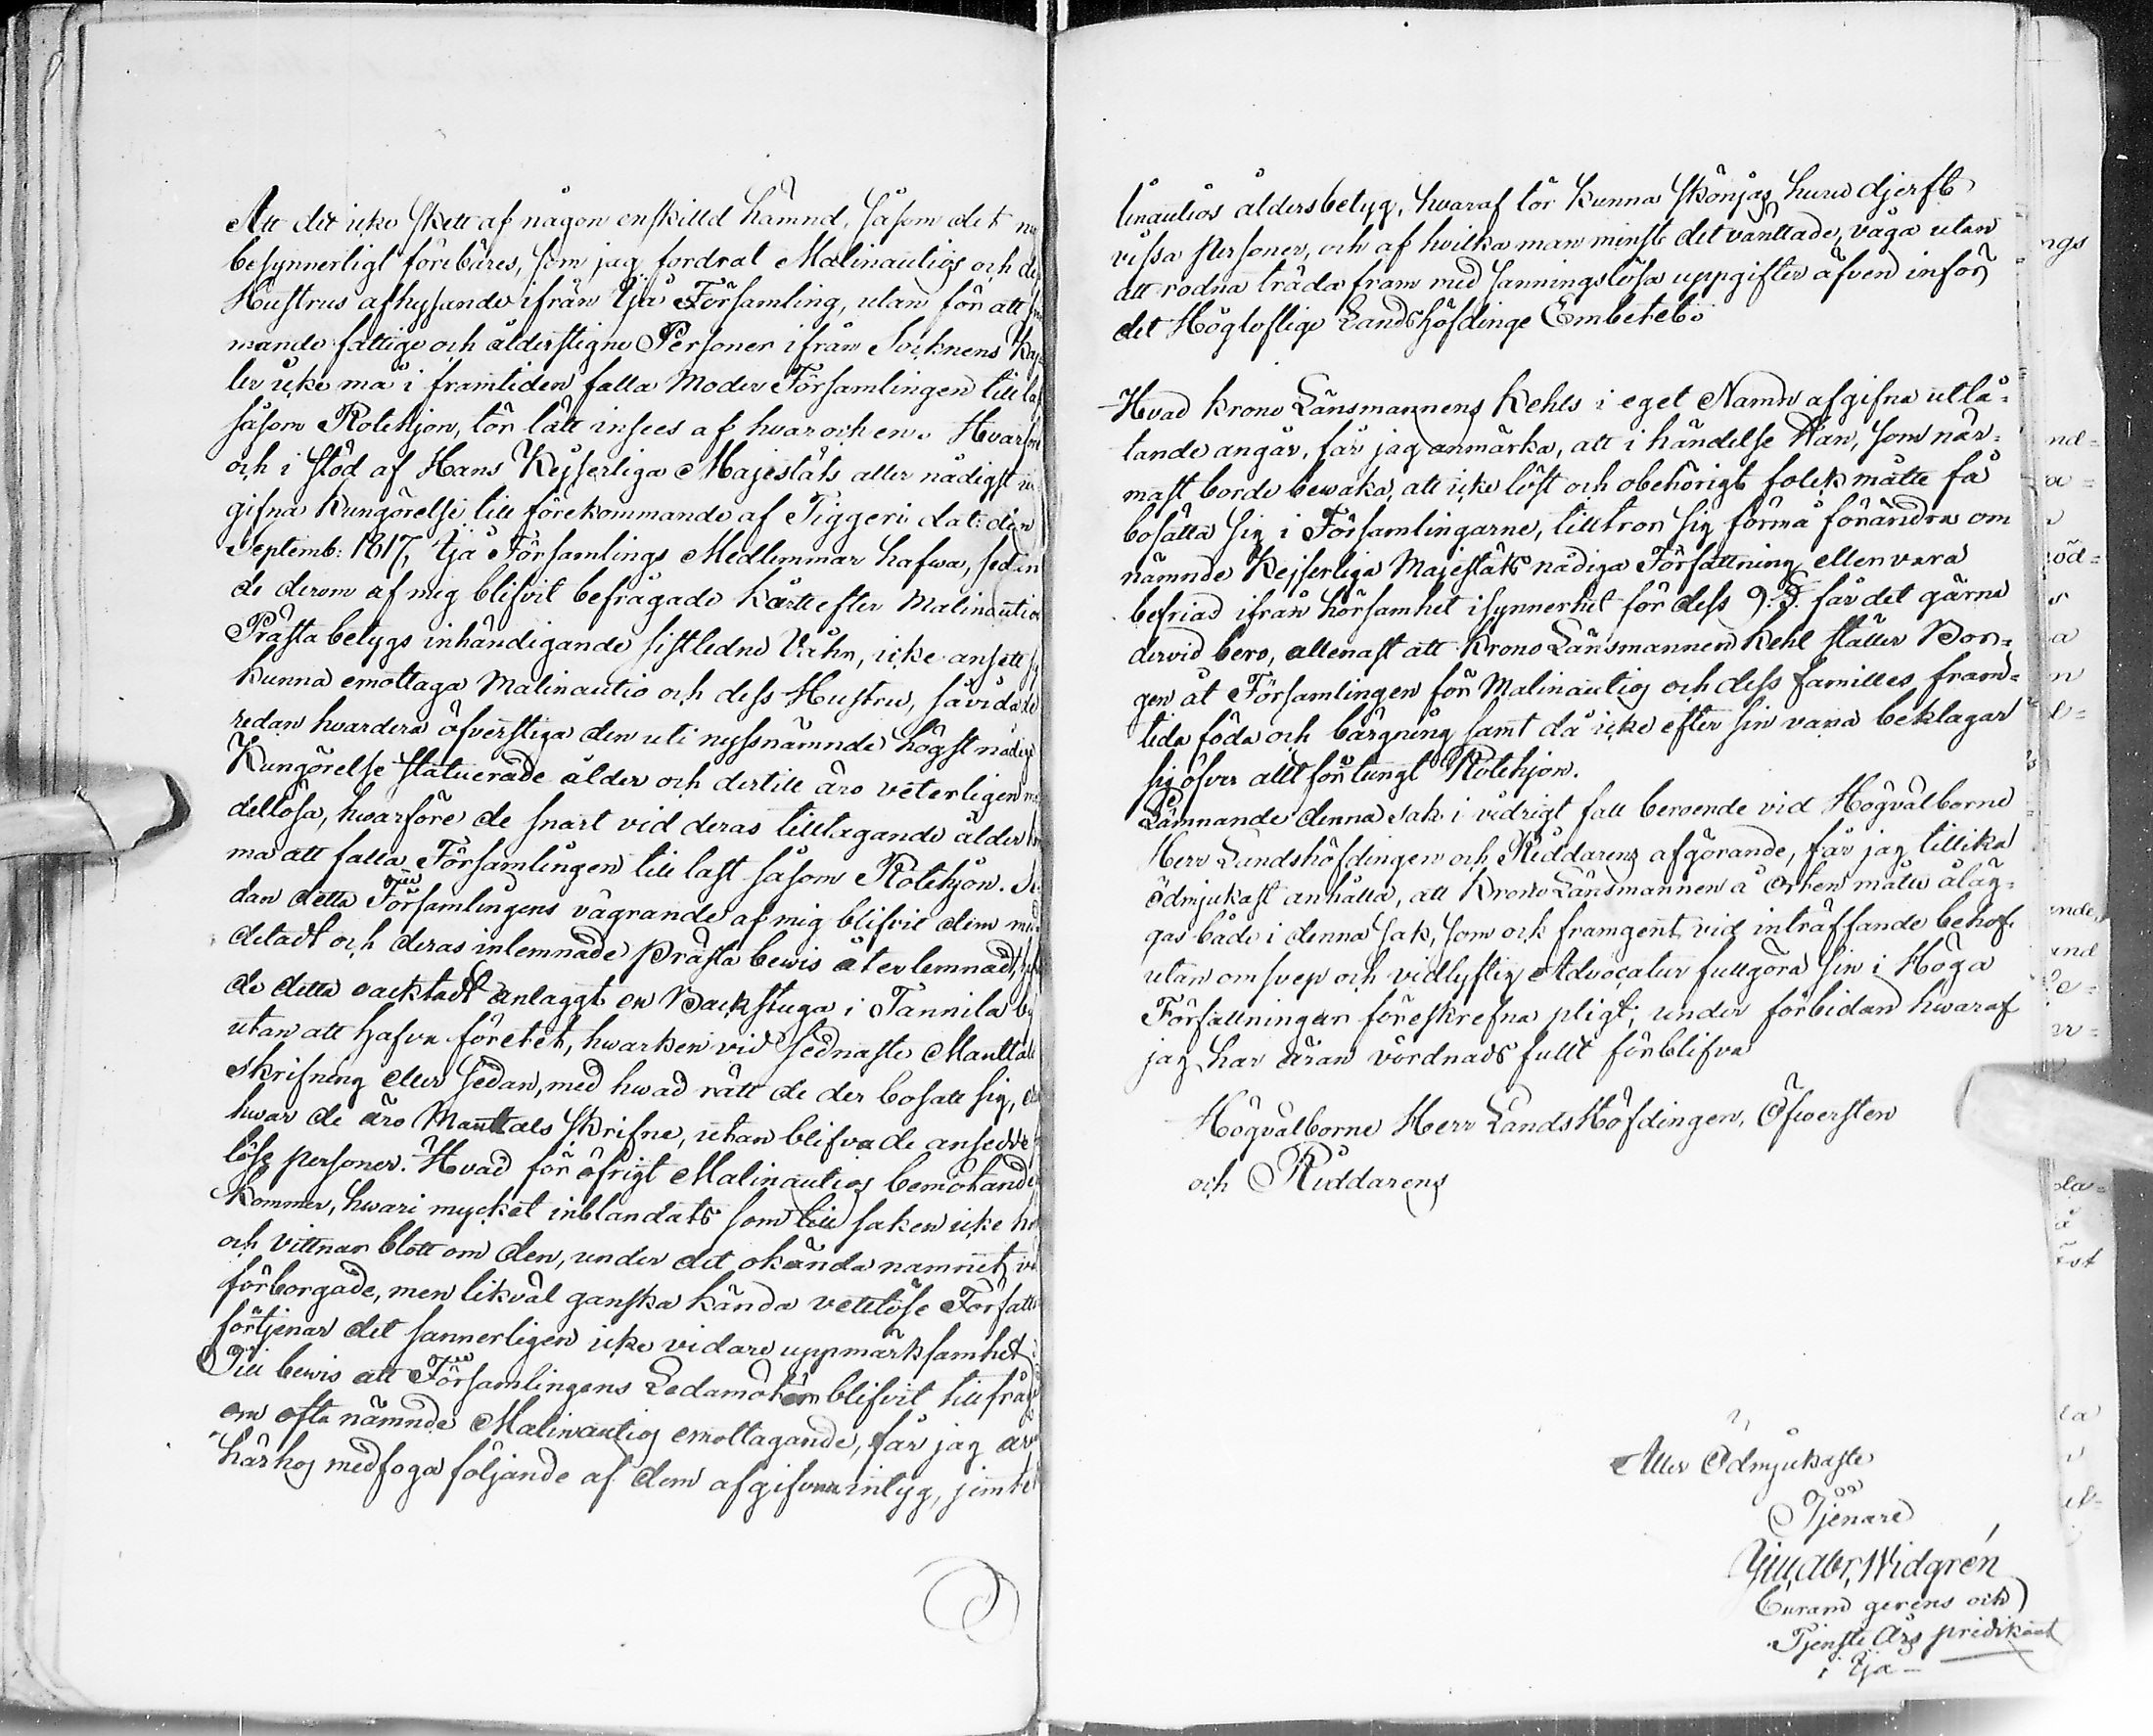 Att det icke skett af någon enskilld hämnd, såsom det
besynnerligt förebäres, som jag fordrat Malinautios och
Hustrus afhysande ifrån Ijå Församling, utan för att
mande fattige och ålderstigne Personer ifrån Socknens
ler icke må i framtiden falla Moder Församlingen till
såsom Rotehjon, tör lätt inses af hvar och en.
och i stöd af Hans Kejserliga Majestäts aller nådigst
gifna Kungörelse till förekommande af Tiggeri dat: den
Septemb: 1817, Ijå Församlings Medlemmar hafwa, sedan
de derom af mig blifvit befrågade kårtt efter Malinautios
Prästa betygs inhändigande sistledne Våhr, icke ansett
kunna emottaga Malinautio och dess Hustru, såvida de
redan hvardera öfverstiga den uti nyssnämnde högst nådige
Kungörelse statuerade ålder och dertill äro veterligen
dellösa, hwarföre de snart vid deras tilltagande ålder
ma att falla Församlingen till last såsom Rotehjon.
dan detta Församlingens vägrande af mig blifvit dem
deladt och deras inlemnade Prästa bewis återlemnadt,
de detta oacktadt anlaggt en Backstuga i Tannila
utan att hafva företet, hwarken vid sednaste Manttals
skrifning eller sedan, med hwad rätt de der bosatt sig,
hwar de äro Manttals skrifne, utan blifva de ansedde
lösa personer. Hvad för öfrigt Malinautios bemötande
kommer, hwari mycket inblandats som till saken icke
och vittnar blott om den, under det okända namnet
förborgade, men likväl ganska kända vettlöse Författ
förtjenar det sannerligen icke vidare uppmärksamhet
Till bewis att Församlingens Ledamöter blifvit tillfråg
om ofta nämnde Malinautios emottagande, får jag
härhos medfoga följande af dem afgifvna intyg, jemte
linautios åldersbetyg, hwaraf tör kunna skönjas huru djerft
vissa personer, och af hvilka man minst det vänttade, våga utan
att rodna träda fram med sanningslösa uppgifter äfven inför
det Höglofliga Landshöfdinge Embetet.
Hvad Krono Länsmannens Kehls i eget Namn afgifna utlå-
tande angår, får jag anmärka, att i händelse Han, som när-
mast borde bewaka, att icke löst och obehörigt folck måtte få
bosätta sig i Församlingarne, tilltror sig förmå förändra om
nämnde Kejserliga Majestäts nådiga Författning eller vara
befriad ifrån hörsamhet isynnerhet för dess 9: §. får det gärna
dervid bero, allenast att Krono Länsmannen Kehl ställer Bor-
gen åt Församlingen för Malinautios och dess familles fram-
tida föda och bärgning samt då icke efter sin vana beklagar
sig öfver allt för tungt Rotehjon.
Lämnande denna sak i vidrigt fall beroende vid Högvälborne
Herr Landshöfdingen och Riddarens afgörande, får jag tillika
ödmjukast anhålla, att Krono Länsmannen å Orten måtte åläg-
gas både i denna sak, som ock framgent vid inträffande behof
utan omsvep och vidlyftig Advocatur fullgöra sin i Höga
Författningar föreskrefna pligt; under förbidan hwaraf
jag har äran vördnadsfullt förblifva
Högvälborne Herr LandsHöfdingen, Öfwersten
och Riddarens
Aller Ödmjukaste
Tjenare
Abr. Widgrén
Curam gerens och
Tjenste Års predikant
i Ijå